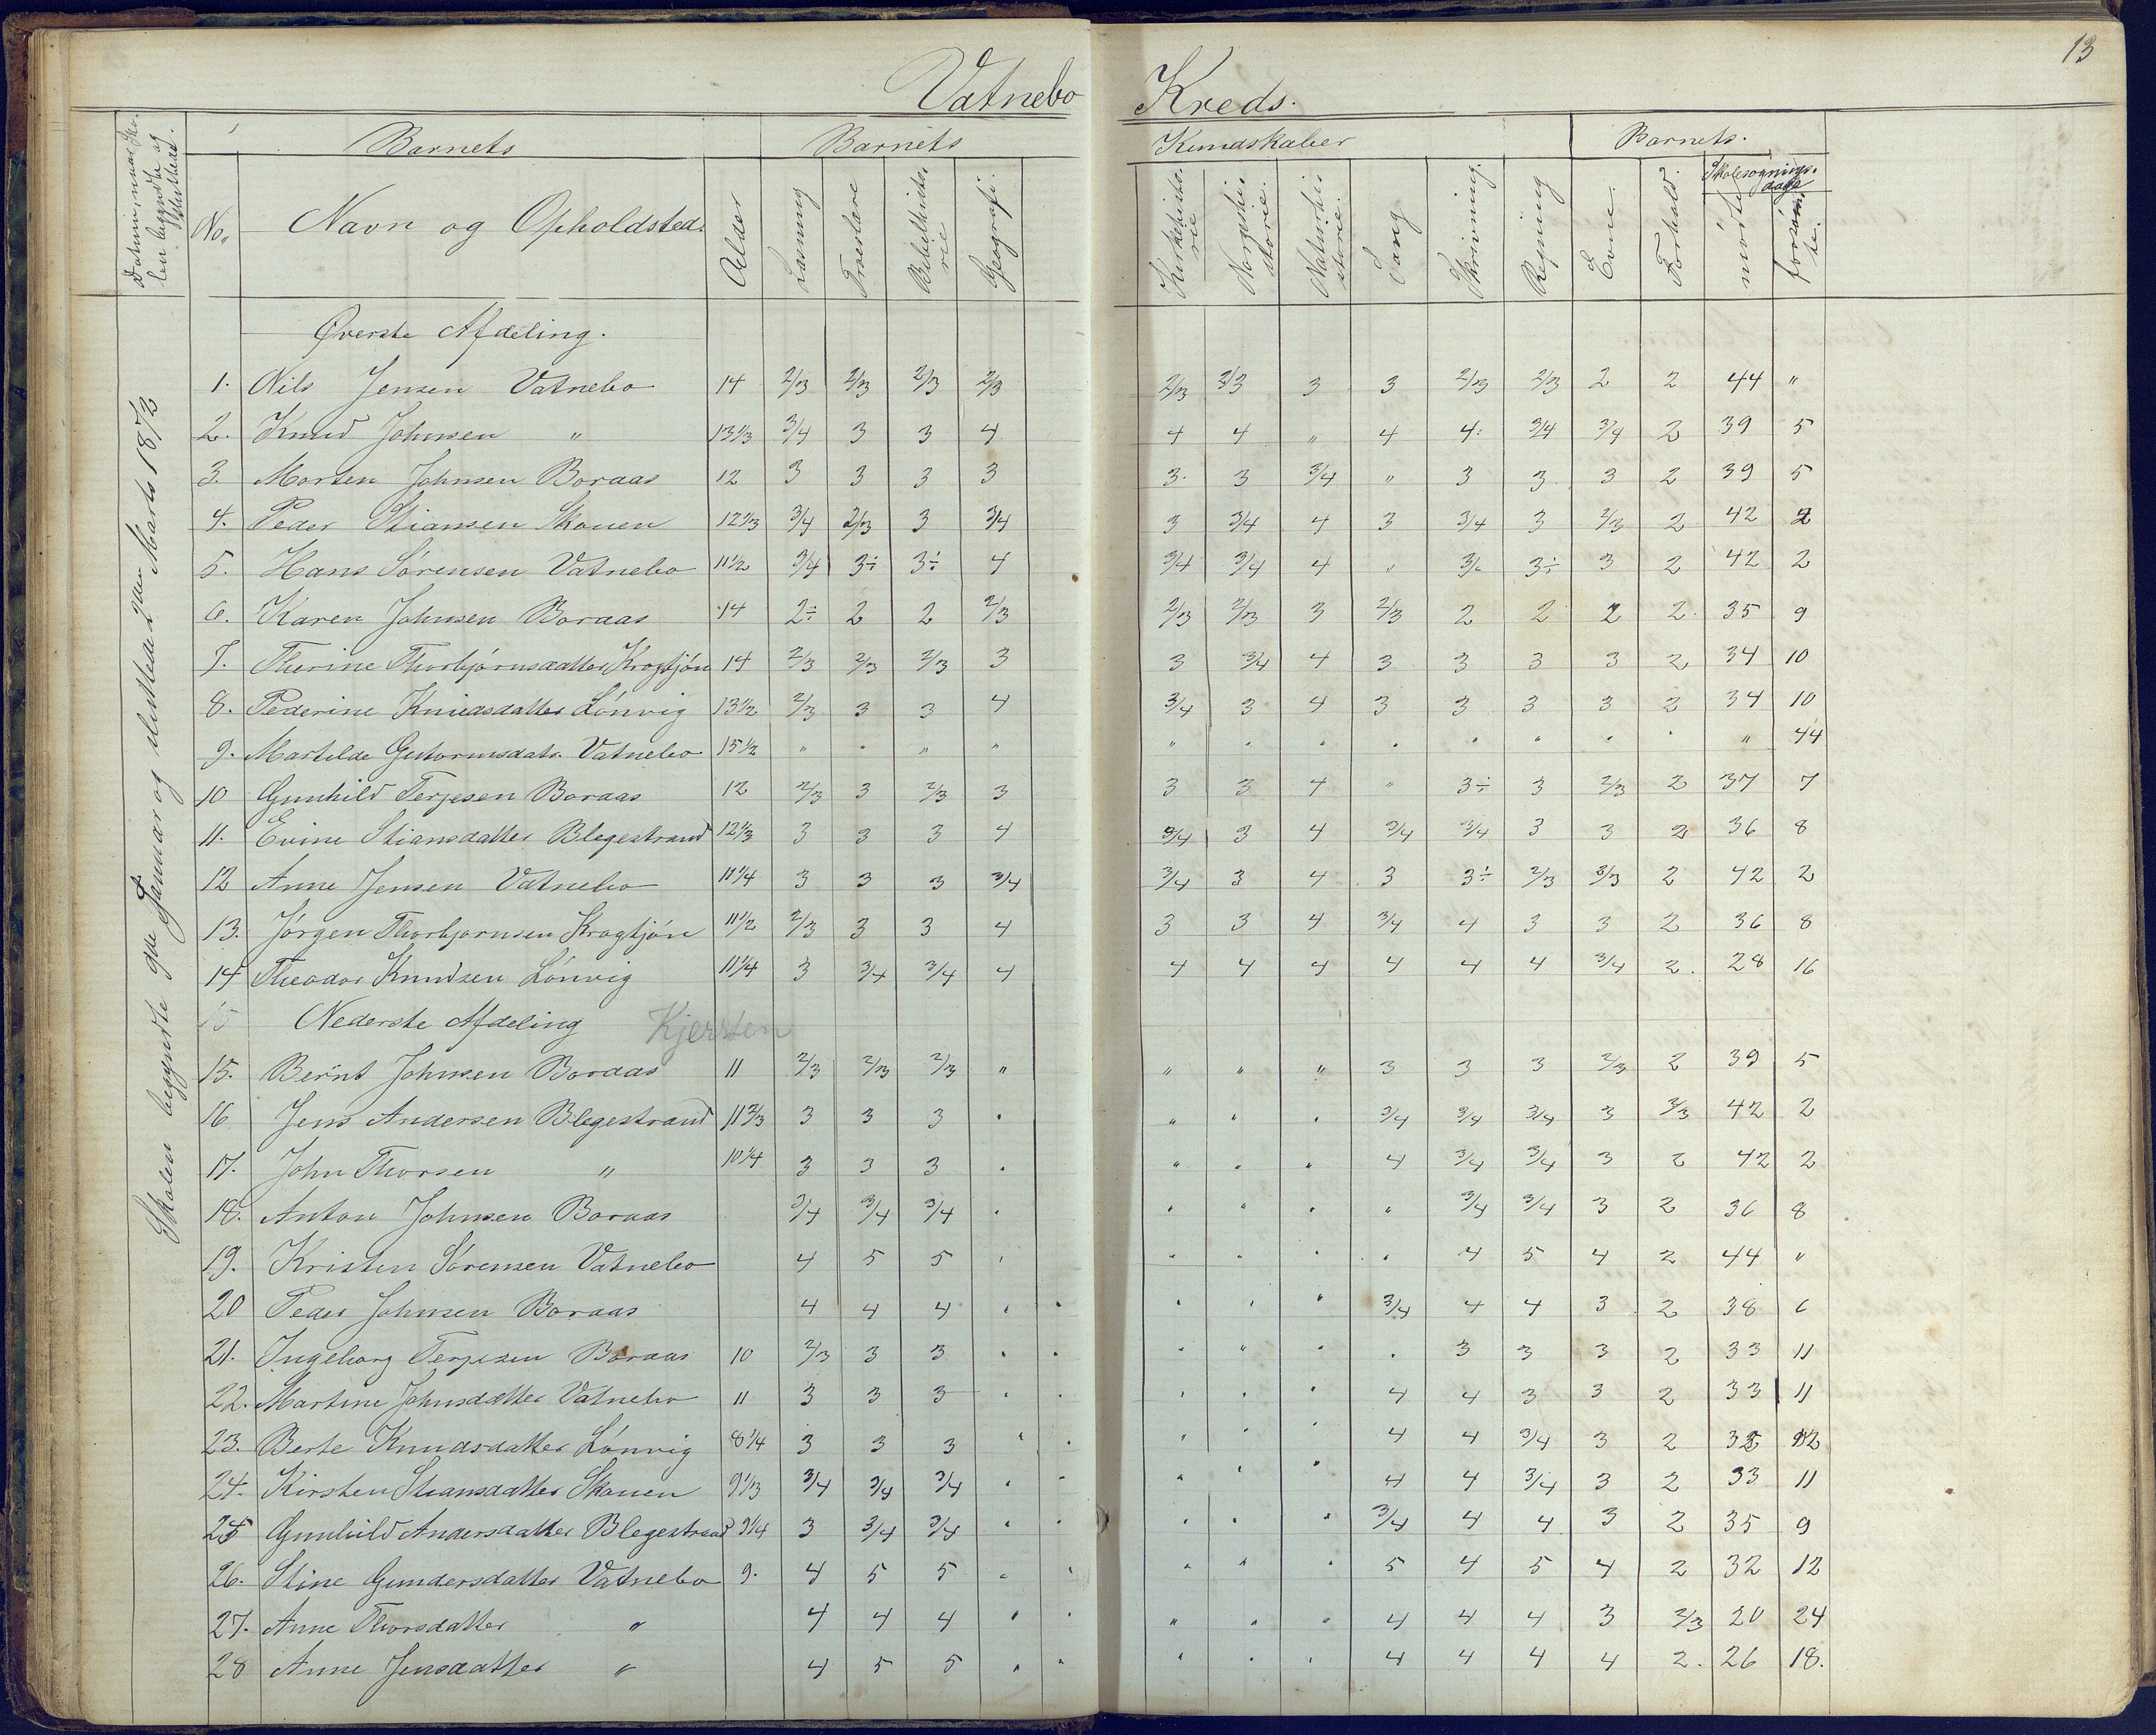 13
Vatnebo Kreds.
Datum, naar Skolen begyndte og sluttede.
Barnets Barnets Kundskaber Barnets.
No. Navn og Opholdsted. Alder Læsning Troeslære Bibelhistorie Geografi. Kirkehistorie Norgeshistorie. Naturhistorie. Sang Skrivning. Regning Evne. Forhold. Skolesøgningsdage mødte forsømte.
Skolen begyndte 9de Januar og sluttede 2den Marts 1872
Øverste Afdeling.
1. Nils Jensen Vatnebo 14 2/3 2/3 2/3 2/3 2/3 2/3 3 3 2/3 2/3 2 2 44 "
2. Knud Johnsen " 13 1/3 3/4 3 3 4 4 4 " 4 4. 3/4 3/4 2 39 5
3. Morten Johnsen Boraas 12 3 3 3 3 3. 3 3/4 " 3 3 3 2 39 5
4. Peder Stiansen Skouen 12 1/3 3/4 2/3 3 3/4 3 3/4 4 3 3/4 3 2/3 2 42 2
5. Hans Sørensen Vatnebo 11 1/2 3/4 3÷ 3÷ 4 3/4 3/4 4 " 3/4 3÷ 3 2 42 2
6. Karen Johnsen Boraas 14 2÷ 2 2 2/3 2/3 2/3 3 2/3 2 2 2 2. 35 9
7. Therine Thorbjørnsdatter Krogtjøn 14 2/3 2/3 2/3 3 3 3/4 4 3 3 3 3 2 34 10
8. Pederine Knudsdatter Lønvig 13 1/2 2/3 3 3 4 3/4 3 4 3 3 3 3 2 34 10
9. Martilde Gutormsdatr. Vatnebo 15 1/2 " " " " " " " " " " " " " 44
10 Gunhild Terjesen Boraas 12 2/3 3 2/3 3 3 3 4 " 3÷ 3 2/3 2 37 7
11. Evine Stiansdatter Blegestrand 12 1/3 3 3 3 4 3/4 3 4 3/4 3/4 3 3 2 36 8
12 Anne Jensen Vatnebo 11 1/4 3 3 3 3/4 3/4 3 4 3 3÷ 2/3 2/3 2 42 2
13. Jørgen Thorbjørnsen Krogtjøn 11 1/2 2/3 3 3 4 3 3 4 3/4 4 3 3 2 36 8
14 Theodor Knudsen Lønvig 11 1/4 3 3/4 3/4 4 4 4 4 4 4 4 3/4 2. 28 16
15 Nederste Afdeling Kjersten
15. Bernt Johnsen Boraas 11 2/3 2/3 2/3 " " " " 3 3 3 2/3 2 39 5
16 Jens Andersen Blegestrand 11 2/3 3 3 3 " " " " 3/4 3/4 3/4 3 2/3 42 2
17. John Thorsen " 10 1/4 3 3 3 " " " " 4 3/4 3/4 3 2 42 2
18. Anton Johnsen Boraas 3/4 3/4 3/4 " " " " " 3/4 3/4 3 2 36 8
19. Kristen Sørensen Vatnebo 4 5 5 " " " " " 4 5 4 2 44 "
20 Peder Johnsen Boraas 4 4 4 " " " " " 3/4 4 4 3 2 38 6
21. Ingeborg Terjesen Boraas 10 2/3 3 3 " " " " " " 3 3 3 2 33 11
22. Martine Johnsdatter Vatnebo 11 3 3 3 " " " " " 4 4 3 3 2 33 11
23. Berte Knudsdatter Lønvig 8 1/4 3 3 3 " " " " " 4 4 3/4 3 2 32 12
24. Kirsten Stiansdatter Skouen 9 1/3 3/4 3/4 3/4 " " " " " 4 4 3/4 3 2 33 11
25 Gunhild Andersdatter Blegestrand 9 1/4 3 3/4 3/4 " " " " " 3/4 4 4 3 2 35 9
26. Stine Gundersdatter Vatnebo 9. 4 5 5 " " " " " 5 4 5 4 2 32 12
27. Anne Thorsdatter " 4 4 4 " " " " " 4 4 4 3 2/3 20 24
28 Anne Jensdatter " 4 5 5 " " " " " 4 4 4 4 2. 26 18.